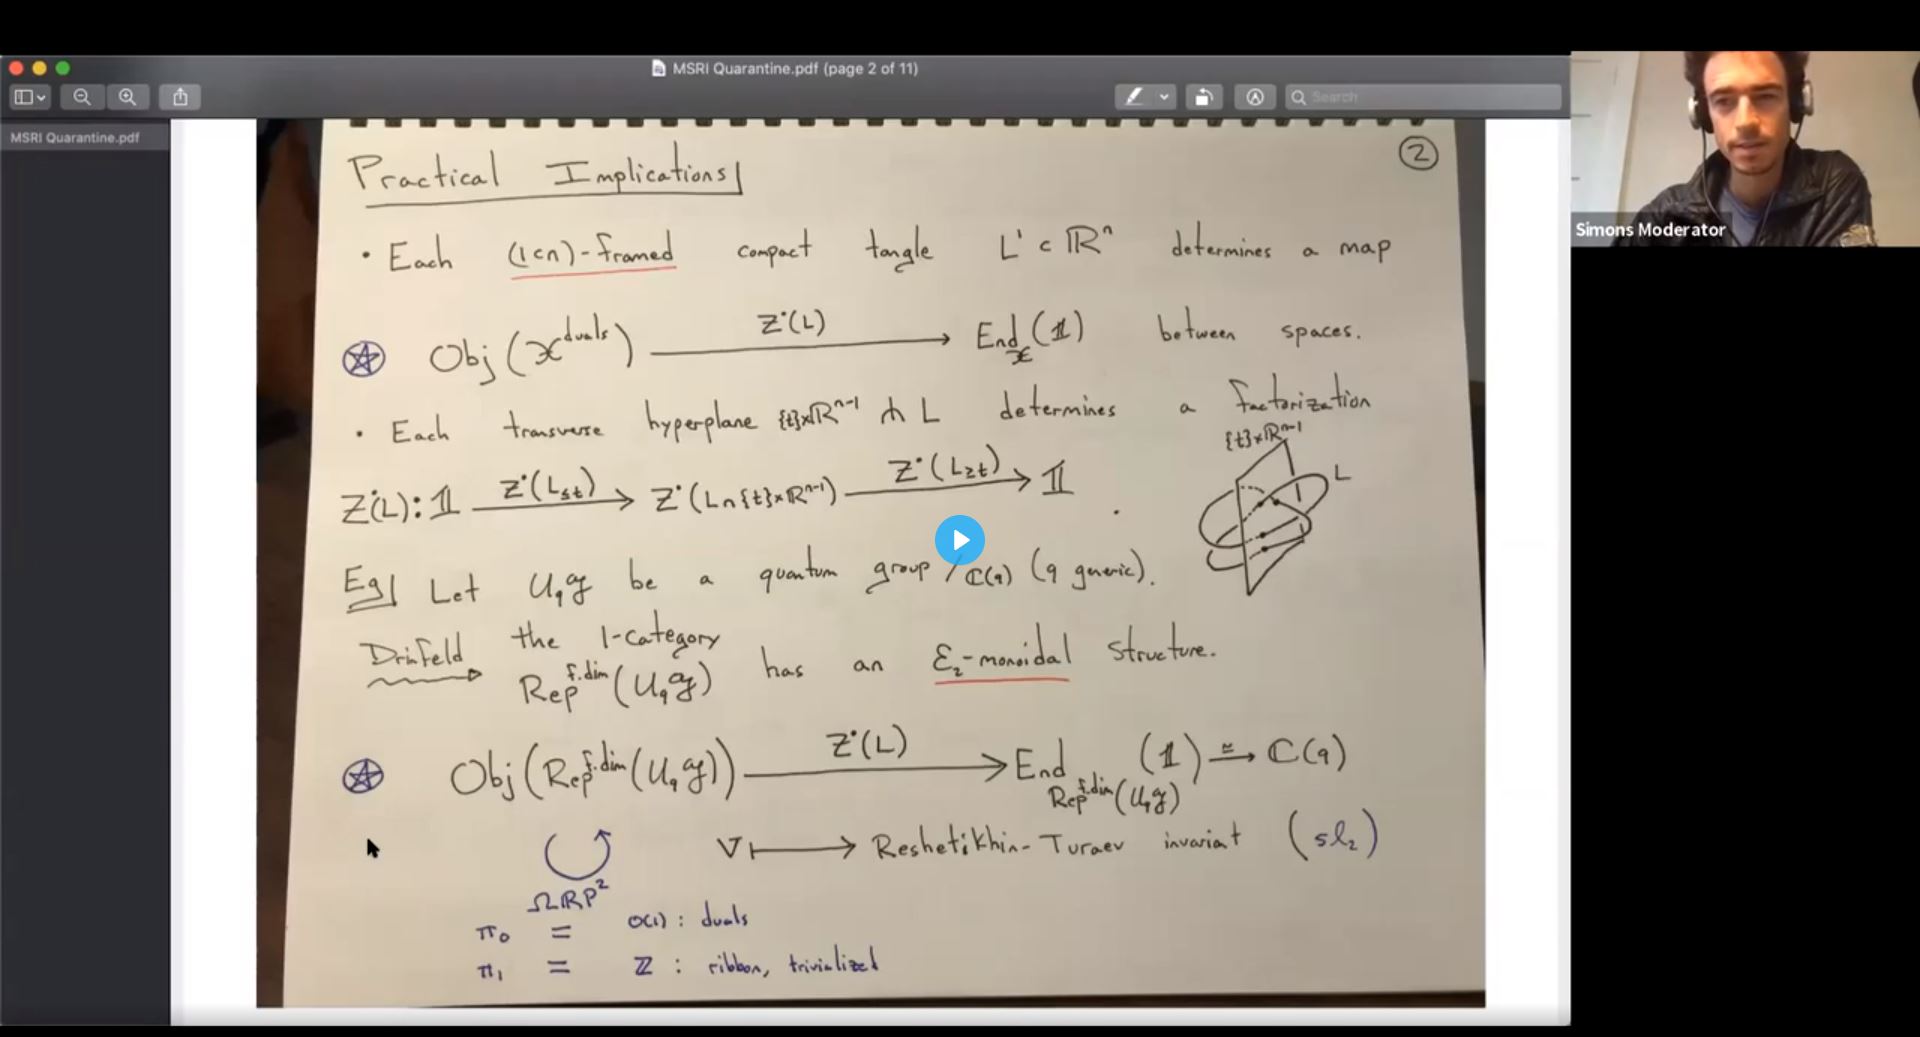 MSRI Quarantine.pdf (page 2 of 11)
Search
MSRI Quarantine.pdf
Simons Moderator
②
Practical Implications
• Each (1⊂n)-framed compact tangle L¹ ⊂ ℝⁿ determines a map
Obj(𝒳^duals) —Z(L)→ End_𝒳(𝟙) between spaces.
• Each transverse hyperplane {t}×ℝⁿ⁻¹ ⋔ L determines a factorization
{t}×ℝⁿ⁻¹
L
Z(L): 𝟙 —Z(L≤t)→ Z(L∩{t}×ℝⁿ⁻¹) —Z(L≥t)→ 𝟙.
Eg Let U_q𝔤 be a quantum group /ℂ(q) (q generic).
Drinfeld the 1-category
Rep^f.dim(U_q𝔤) has an ℰ₂-monoidal structure.
Obj(Rep^f.dim(U_q𝔤)) —Z(L)→ End_Rep^f.dim(U_q𝔤)(𝟙) ≅→ ℂ(q)
V ↦ Reshetikhin-Turaev invariant (sl₂)
ΩℝP²
π₀ = O(1) : duals
π₁ = ℤ : ribbon, trivialized